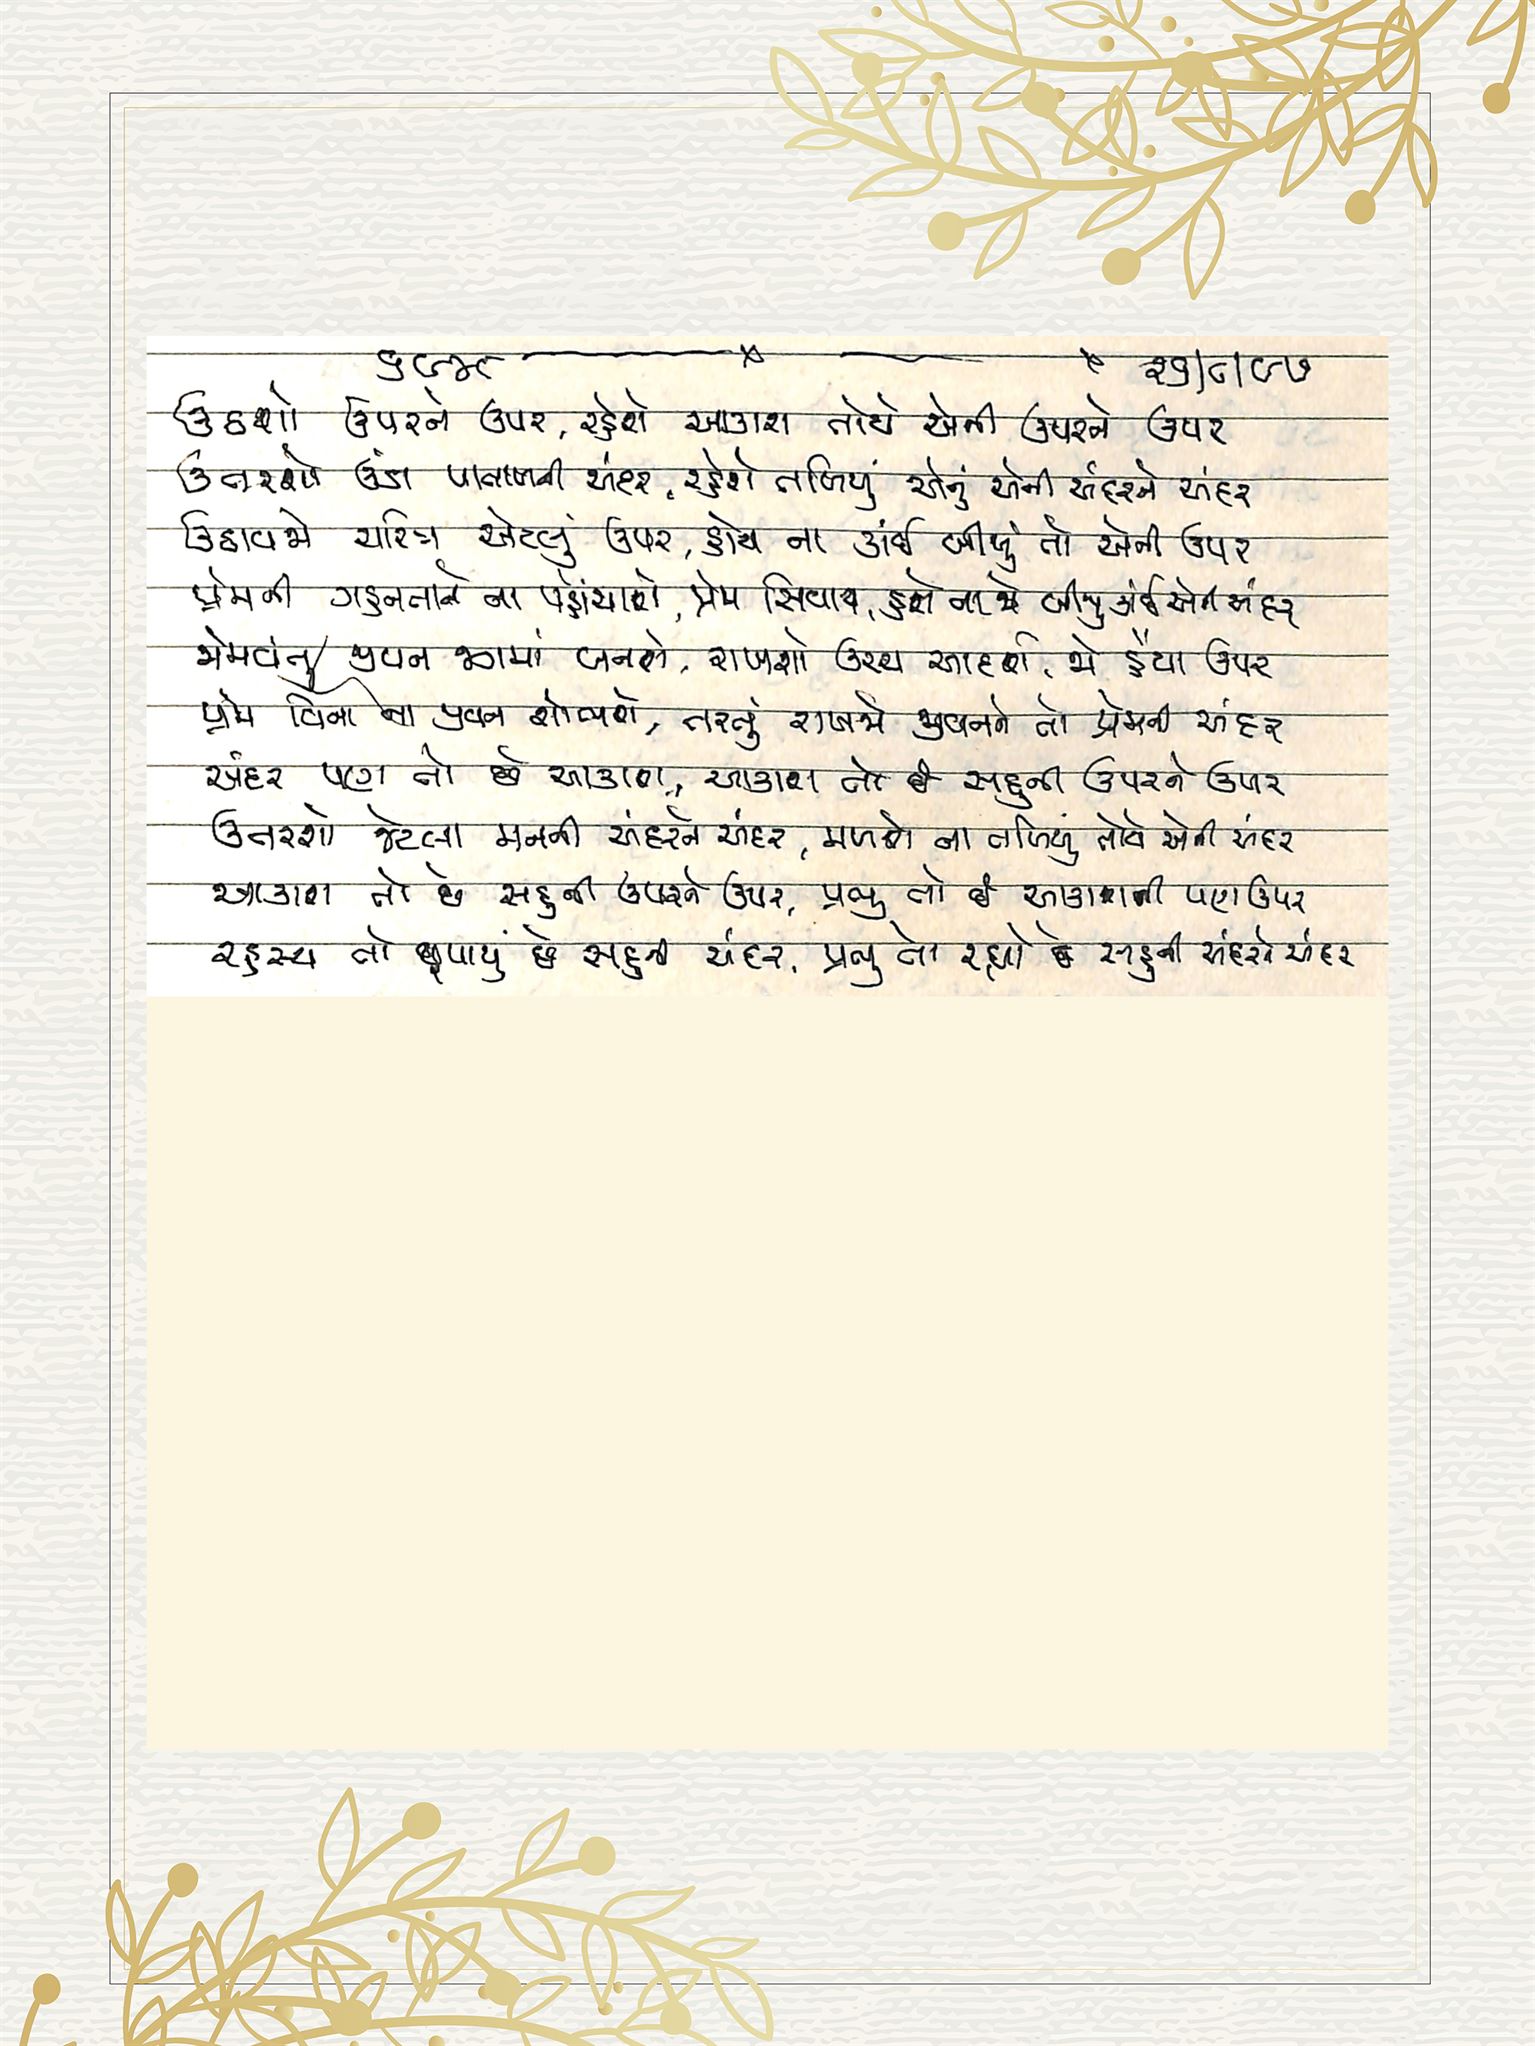 ૨૧/૮/૯૭
ઉઠશો ઉપરને ઉપર, રહેશે આકાશ તોયે એની ઉપરને ઉપર
ઉતરશો ઉંડા પાતાળની અંદર, રહેશે તળિયું એનું એની અંદરને અંદર
ઉઠાવજો ચરિત્ર એટલું ઉપર, હોય ના કાંઈ બીજું તો એની ઉપર
પ્રેમની ગહનતાને ના પહોંચાશે, પ્રેમ સિવાય, હશે ના જો બીજું કાંઈ એની અંદર
પ્રેમવંતુ જીવન જગમાં બનશે, રાખશો ઉચ્ચ આદર્શ, જો હૈયા ઉપર
પ્રેમ વિના ના જીવન શોભશે, તરતું રાખજો જીવનને તો પ્રેમની અંદર
અંદર પણ તો છે આકાશ, આકાશ તો છે સહુની ઉપરને ઉપર
ઉતરશો જેટલા મનની અંદરને અંદર, મળશે ના તળિયું તોયે એની અંદર
આકાશ તો છે સહુની ઉપરને ઉપર, પ્રભુ તો છે આકાશની પણ ઉપર
રહસ્ય તો છુપાયું છે સહુની અંદર, પ્રભુ તો રહ્યો છે સહુની અંદરને અંદર